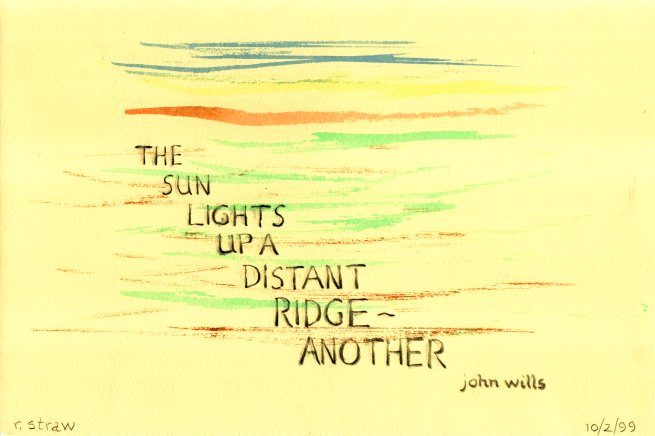 THE
SUN
LIGHTS
UP A
DISTANT
RIDGE~
ANOTHER
john wills
r. straw
10/2/99